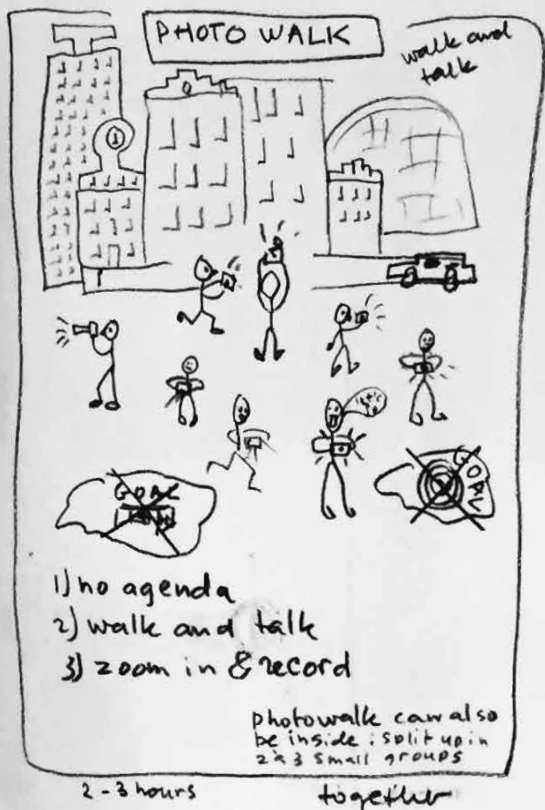 PHOTO WALK
walk and
talk
GOAL
GOAL
1) no agenda
2) walk and talk
3) zoom in & record
photowalk can also
be inside : split up in
2 à 3 small groups
2 - 3 hours
together